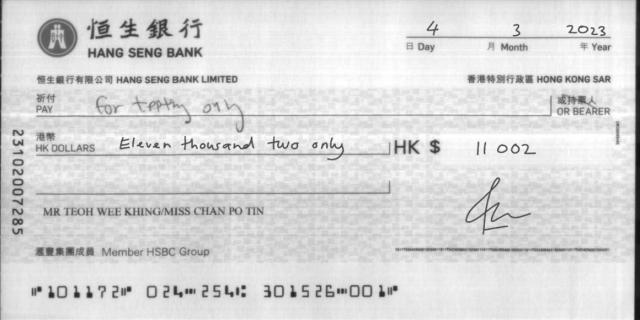 恒生銀行
HANG SENG BANK
4 3 2023
日 Day 月 Month 年 Year
恒生銀行有限公司 HANG SENG BANK LIMITED 香港特別行政區 HONG KONG SAR
祈付 for only 或持票人
PAY OR BEARER
港幣
HK DOLLARS Eleven thousand two only HK $ 11 002
MR TEOH WEE KHING/MISS CHAN PO TIN
滙豐集團成員 Member HSBC Group
⑈101172⑈ 024⑉254⑆ 301526⑉001⑈
23102007285